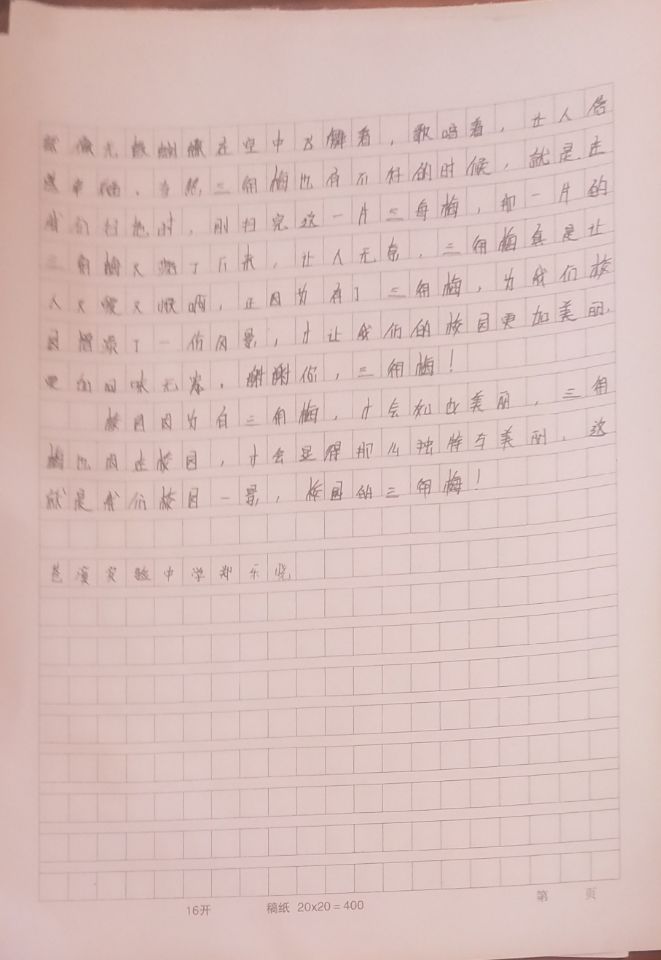 就像无数蝴蝶在空中飞舞着，歌唱着，让人倍
感幸福。当然，三角梅也有不好的时候，就是在
我们扫地时，刚扫完这一片三角梅，那一片的
三角梅又飘了下来，让人无奈，三角梅真是让
人又爱又恨啊，正因为有了三角梅，为我们校
园增添了一份风景，才让我们的校园更加美丽，
更加回味无穷，谢谢你，三角梅！
校园因为有三角梅，才会如此美丽，三角
梅也因在校园，才会显得那么独特与美丽，这
就是我们校园一景，校园的三角梅！
实验中学郑乐
16开 稿纸 20x20=400
第 页